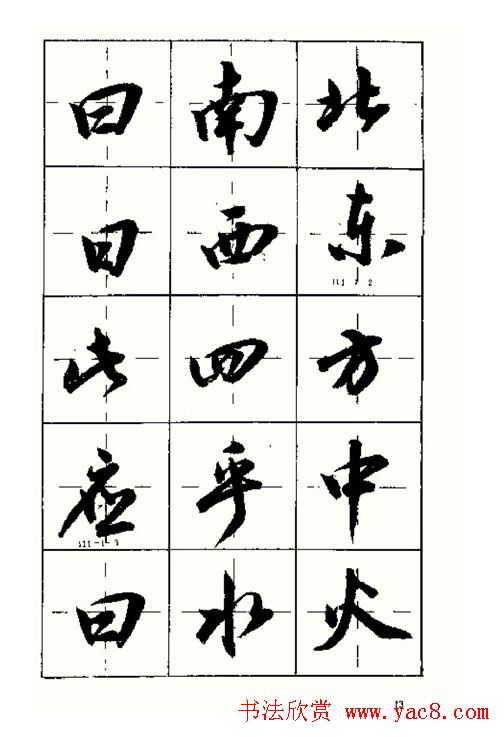 曰南北
曰西东
此四方
应乎中
曰水火
13
书法欣赏 www.yac8.com